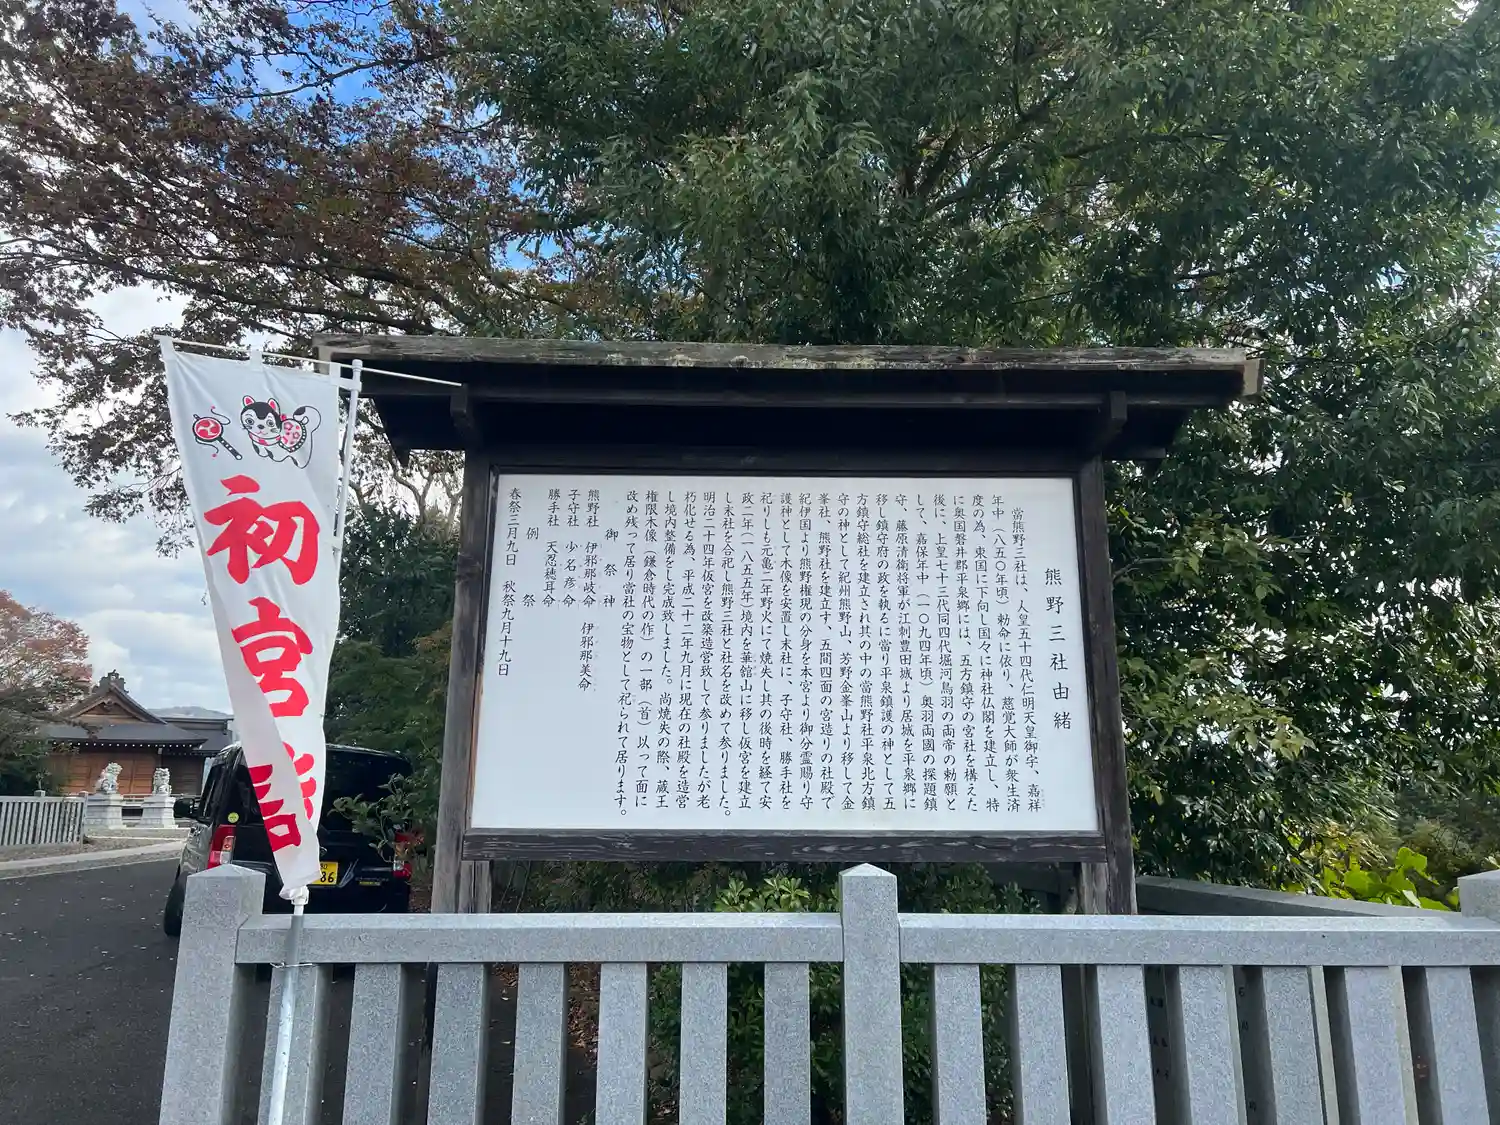 熊野三社由緒
當熊野三社は、人皇五十四代仁明天皇御宇、嘉祥
年中（八五〇年頃）勅命に依り、慈覚大師が衆生済
度の為、東国に下向し国々に神社仏閣を建立し、特
に奥国磐井郡平泉郷には、五方鎮守の宮社を構えた
後に、上皇七十三代同四代堀河鳥羽の両帝の勅願と
して、嘉保年中（一〇九四年頃）奥羽両國の探題鎮
守、藤原清衡将軍が江刺豊田城より居城を平泉郷に
移し鎮守府の政を執るに當り平泉鎮護の神として五
方鎮守総社を建立され其の中の當熊野社平泉北方鎮
守の神として紀州熊野山、芳野金峯山より移して金
峯社、熊野社を建立す、五間四面の宮造りの社殿で
紀伊国より熊野権現の分身を本宮より御分霊賜り守
護神として木像を安置し末社に、子守社、勝手社を
祀りしも元亀二年野火にて焼失し其の後時を経て安
政二年（一八五五年）境内を華館山に移し仮宮を建立
し末社を合祀し熊野三社と社名を改めて参りました。
明治二十四年仮宮を改築造営致して参りましたが老
朽化せる為、平成二十二年九月に現在の社殿を造営
し境内整備をし完成致しました。尚焼失の際、蔵王
権限木像（鎌倉時代の作）の一部（首）以って面に
改め残って居り當社の宝物として祀られて居ります。
御祭神
熊野社 伊邪那岐命 伊邪那美命
子守社 少名彦命
勝手社 天忍穂耳命
例祭
春祭三月九日 秋祭九月十九日
初宮詣